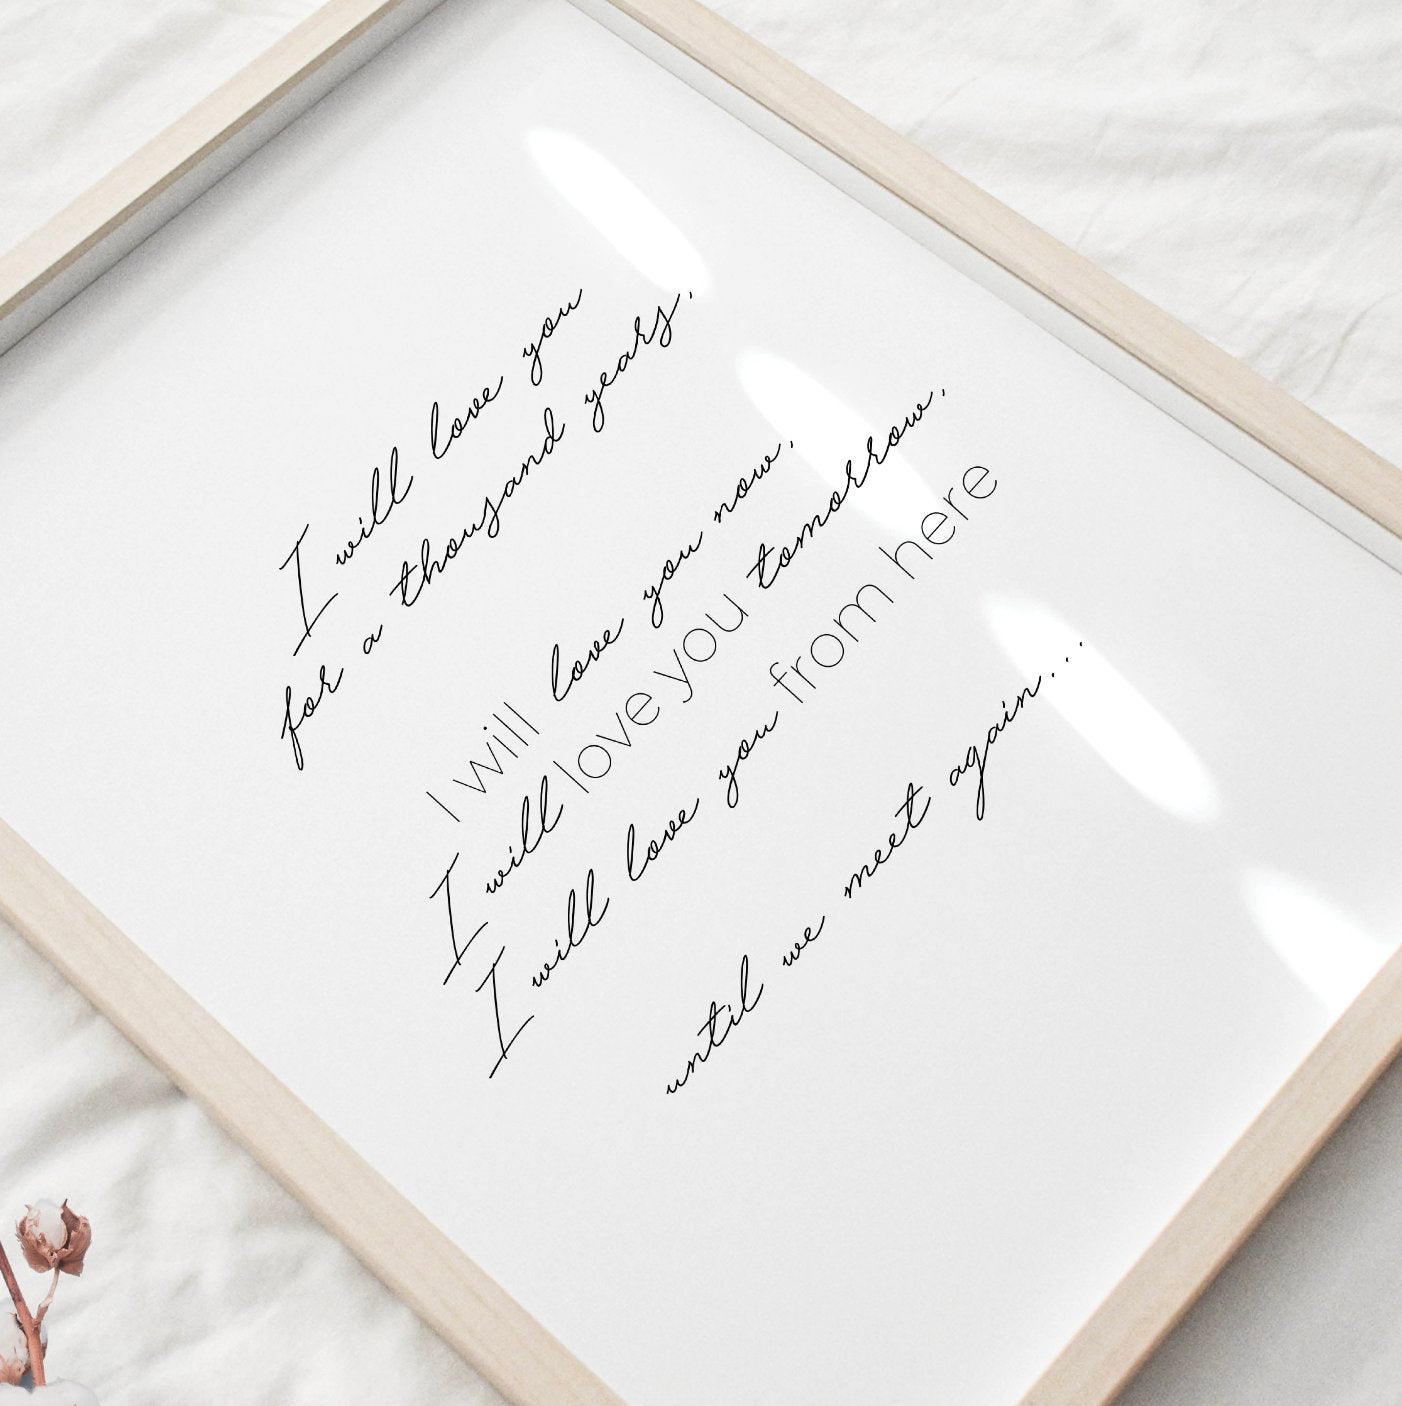 I will love you
for a thousand years,
I will love you now,
I will love you tomorrow,
I will love you from here
until we meet again...